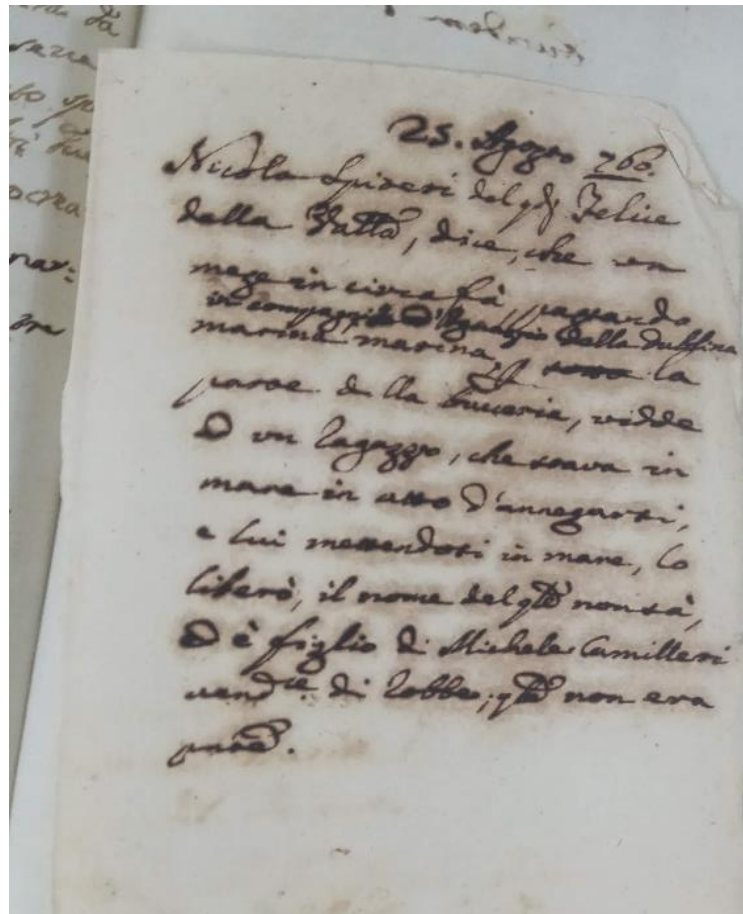 25. Agosto 760.
Nicola Spiteri del qd Felice
della Valletta, dice, che un
mese in circa fà, passando
in compagnia d'Ignazio della
marina marina, la
parte della bucceria, vidde
un ragazzo, che stava in
mare in atto d'annegarsi,
e lui mettendosi in mare, lo
liberò, il nome del qle non sà,
è figlio di Michele Camilleri
di robbe; qle non era